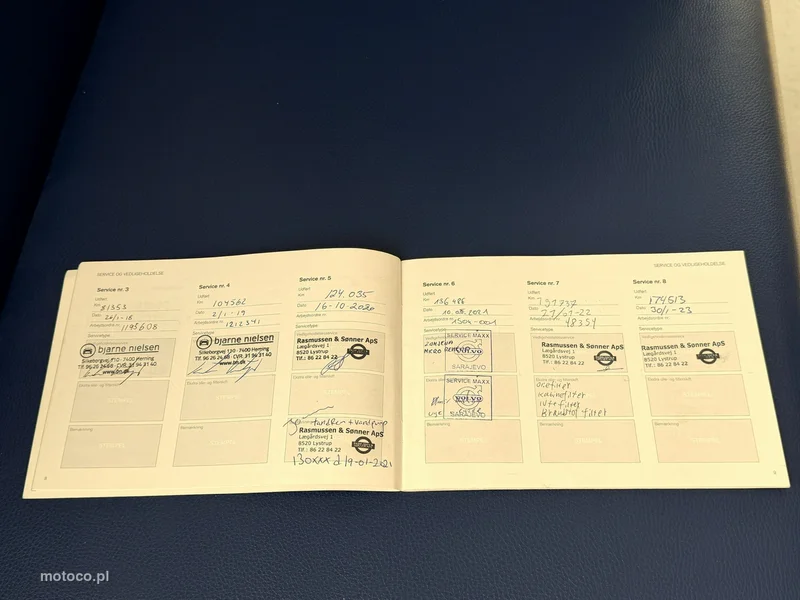 SERVICE OG VEDLIGEHOLDELSE
Service nr. 3
Udført
Km 81353
Dato 22/1-18
Arbejdsordre nr. 1195608
Servicetype
bjarne nielsen
Silkeborgvej 110 · 7400 Herning
www.bn.dk
Bemærkning
Service nr. 4
Udført
Km 104562
Dato 2/1-19
Arbejdsordre nr. 1212341
Servicetype
bjarne nielsen
Silkeborgvej 110 · 7400 Herning
www.bn.dk
Bemærkning
Service nr. 5
Udført
Km 124.035
Dato 16-10-2020
Arbejdsordre nr.
Servicetype
Rasmussen & Sønner ApS
Lægårdsvej 1
8520 Lystrup
Tlf.: 86 22 84 22
tandrem + vandpump
Rasmussen & Sønner ApS
Lægårdsvej 1
8520 Lystrup
Tlf.: 86 22 84 22
130xxx d 19-01-2021
SERVICE OG VEDLIGEHOLDELSE
Service nr. 6
Udført
Km 136486
Dato 10.08.2021
Arbejdsordre nr.
Servicetype
SERVICE MAXX
VOLVO
SARAJEVO
SERVICE MAXX
VOLVO
SARAJEVO
Bemærkning
Service nr. 7
Udført
Km 151737
Dato 27/01-22
Arbejdsordre nr. 48354
Servicetype
Rasmussen & Sønner ApS
Lægårdsvej 1
8520 Lystrup
Tlf.: 86 22 84 22
oliefilter
kabinefilter
luftfilter
Brændstof filter
Bemærkning
Service nr. 8
Udført
Km 174513
Dato 30/1-23
Arbejdsordre nr.
Servicetype
Rasmussen & Sønner ApS
Lægårdsvej 1
8520 Lystrup
Tlf.: 86 22 84 22
Bemærkning
motoco.pl